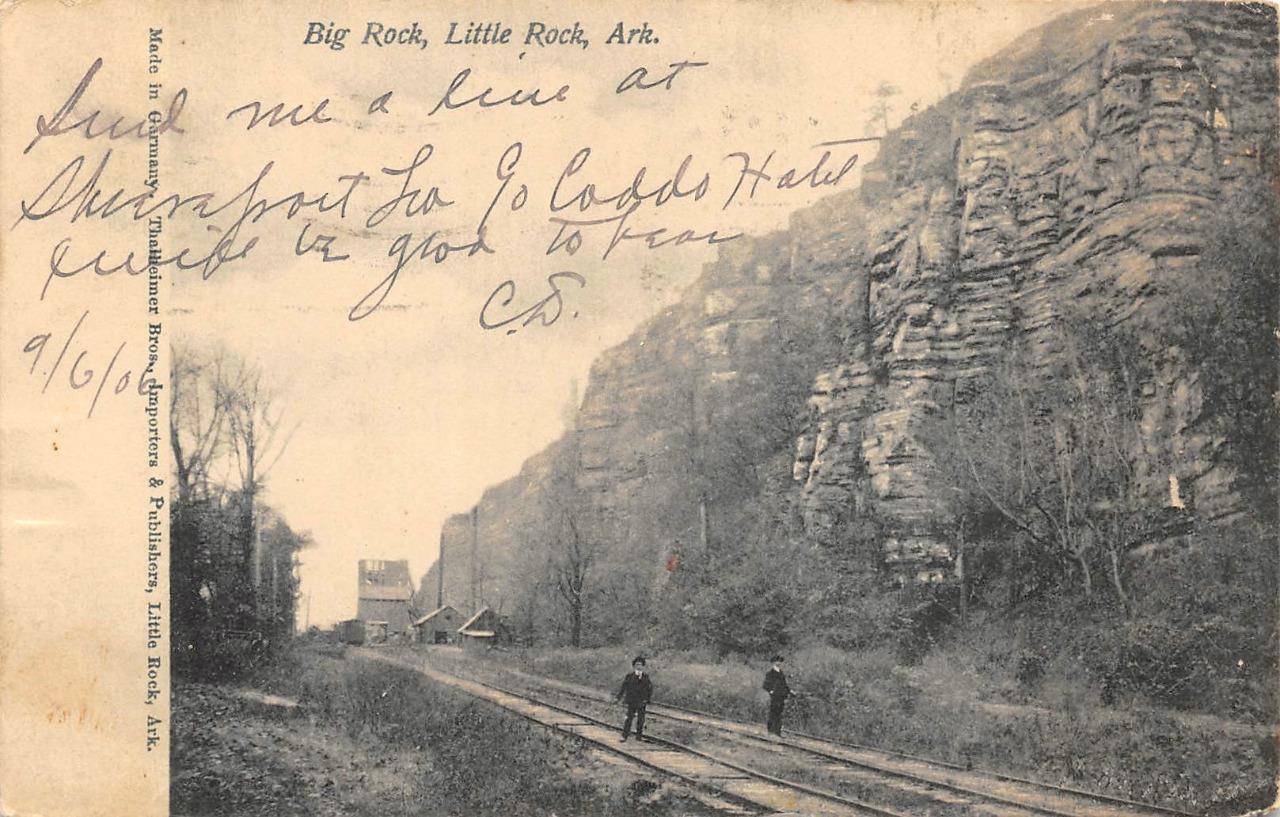 Big Rock, Little Rock, Ark.
Send me a line at
Shreveport La c/o Caddo Hotel
be glad to hear
C.S.
9/6/06
Made in Garmany, Thalheimer Bros., Importers & Publishers, Little Rock, Ark.